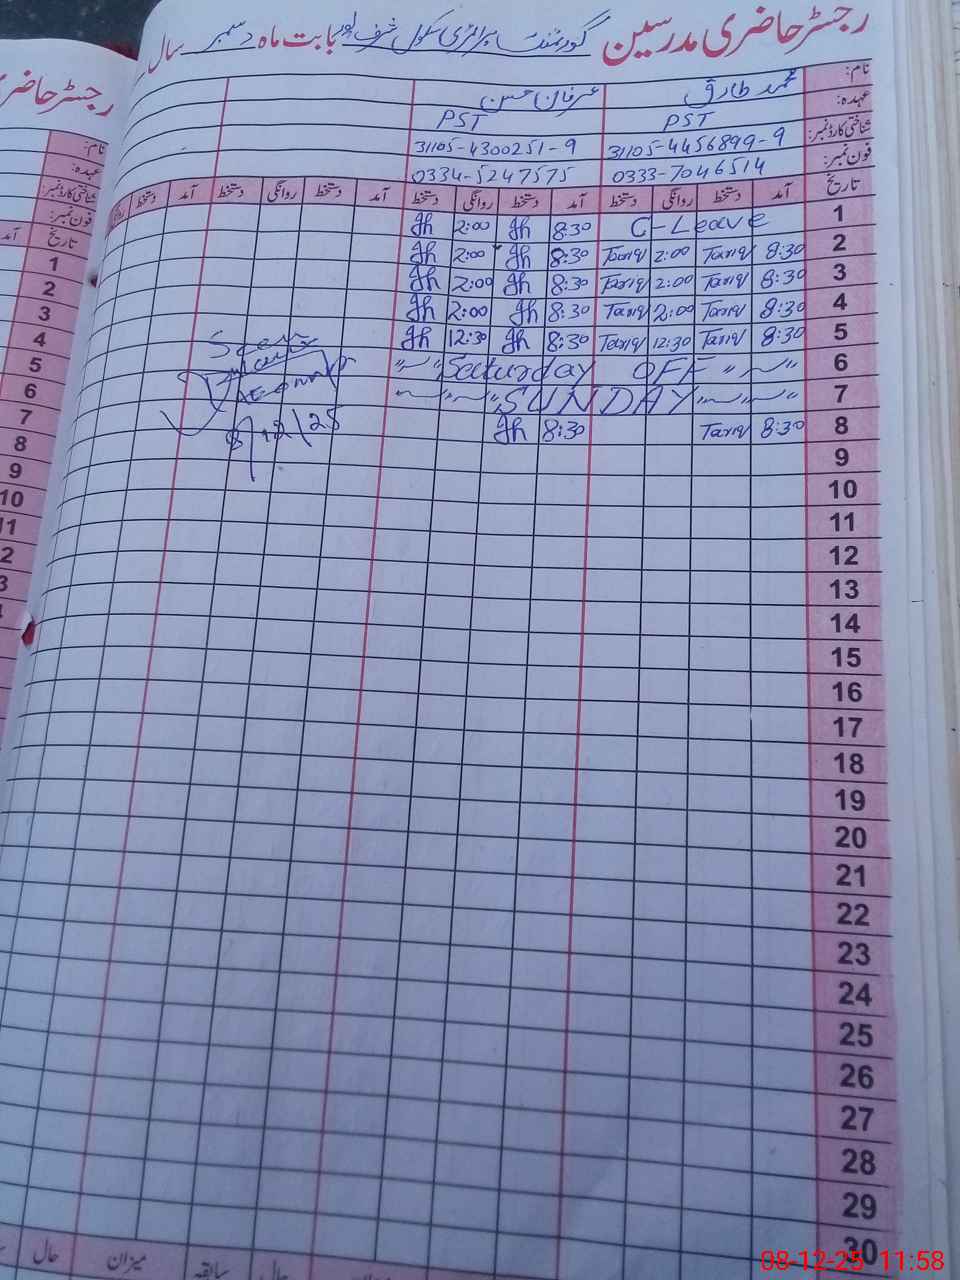 رجسٹر حاضری مدرسین گورنمنٹ پرائمری سکول شرف پور بابت ماہ دسمبر سال
نام: محمد طارق عرفان حسن
عہدہ: PST PST
شناختی کارڈ نمبر: 31105-4456899-9 31105-4300251-9
فون نمبر: 0333-7046514 0334-5247575
تاریخ آمد دستخط روانگی دستخط آمد دستخط روانگی دستخط آمد دستخط روانگی دستخط آمد دستخط
1 C-Leave 8:30 Jh 2:00 Jh
2 8:30 Tariq 2:00 Tariq 8:30 Jh 2:00 Jh
3 8:30 Tariq 2:00 Tariq 8:30 Jh 2:00 Jh
4 8:30 Tariq 2:00 Tariq 8:30 Jh 2:00 Jh
5 8:30 Tariq 12:30 Tariq 8:30 Jh 12:30 Jh
6 Saturday OFF
7 SUNDAY
8 8:30 Tariq 8:30 Jh
Seen
8/12/25
9
10
11
12
13
14
15
16
17
18
19
20
21
22
23
24
25
26
27
28
29
30
میزان حال سابقہ میزان حال
رجسٹر حاضر
نام:
عہدہ:
شناختی کارڈ نمبر:
فون نمبر:
تاریخ آمد
1
2
3
4
5
6
7
8
9
10
11
2
3
08-12-25 11:58